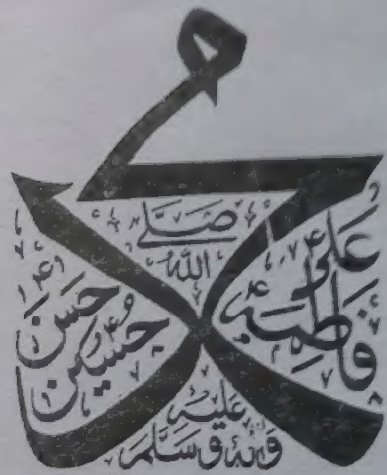 محمد
صَلَّى
اللّٰهُ
عَلَيْهِ
وَآلِهِ وَسَلَّمَ
عَلِی
فَاطِمِه
حَسَن
حُسَین